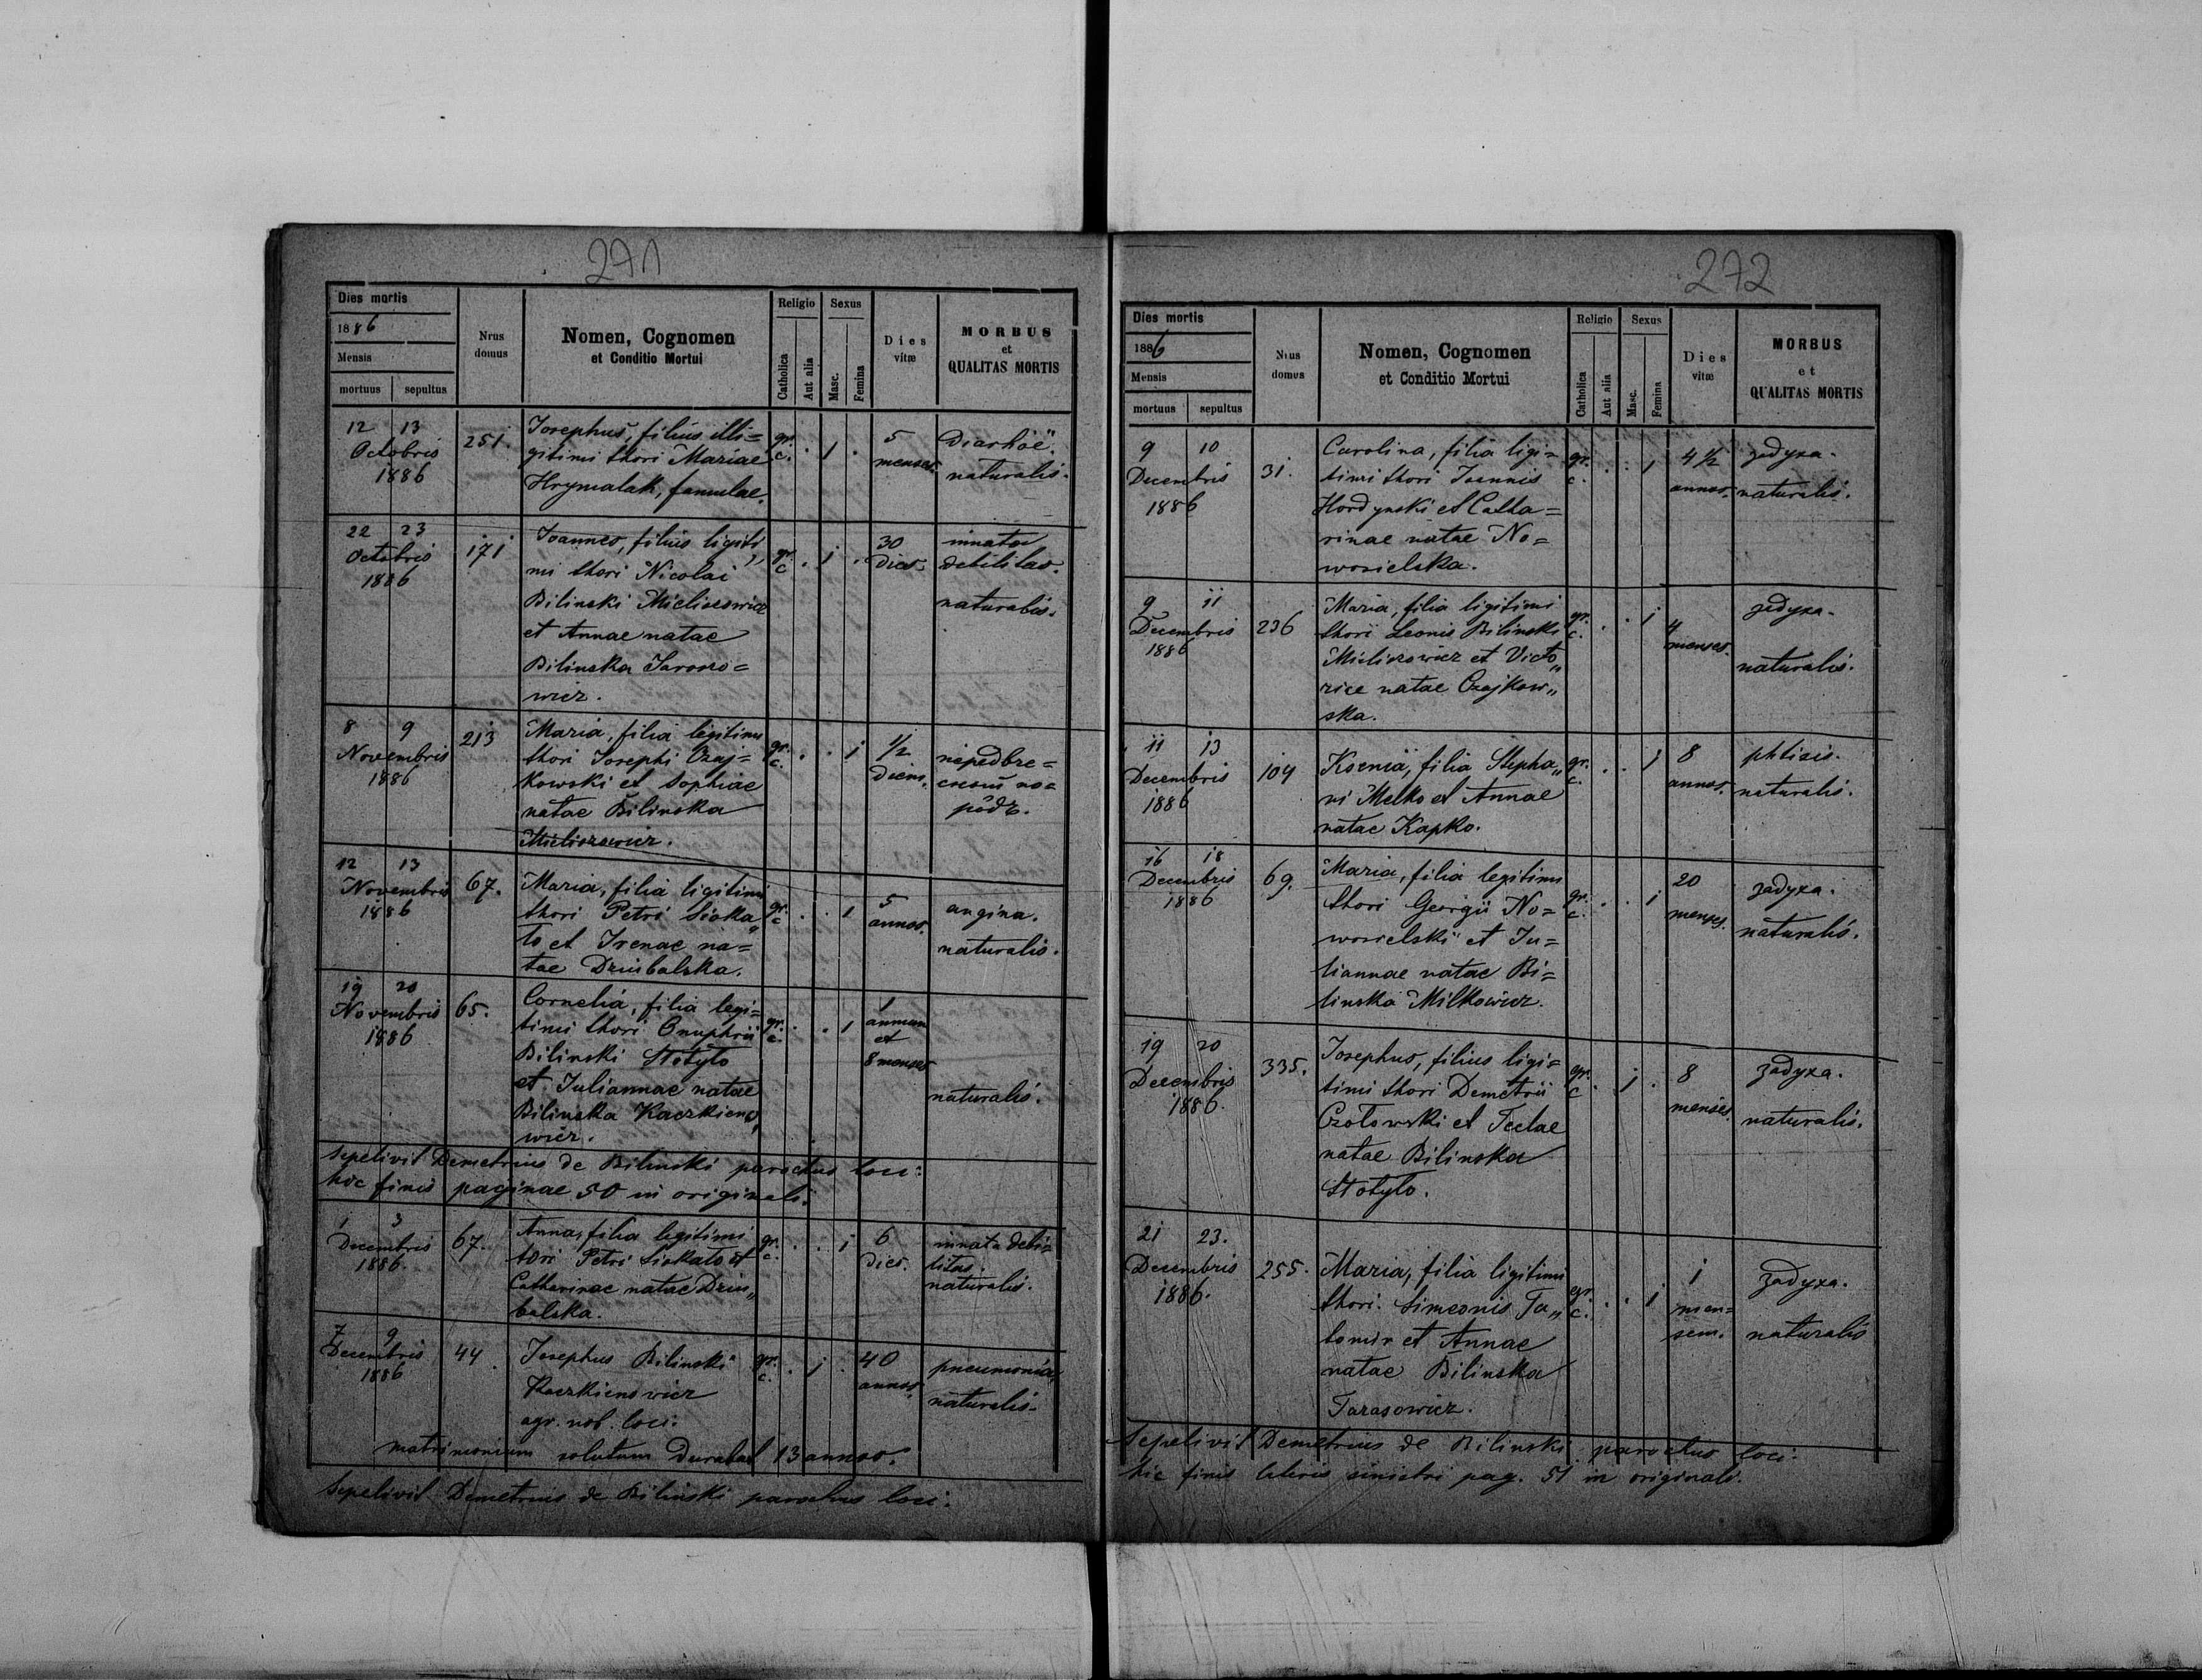 271
Dies mortis
1886
Mensis
mortuus sepultus
Nrus domus
Nomen, Cognomen
et Conditio Mortui
Religio
Catholica
Aut alia
Sexus
Masc.
Femina
Dies vitæ
MORBUS
et
QUALITAS MORTIS
12 13
Octobris
1886
251.
Josephus, filius illi=
gitimi thori Mariae
Hrymalak, famulae.
gr.
c.
. 1 .
5
menses.
Diarhöe.
naturalis.
22 23
Octobris
1886
171
Joannes, filius ligiti„
mi thori Nicolai
Bilinski Mielisrowicz
et Annae natae
Bilinska Jaroszo=
wicz.
gr.
c
. 1 .
30
dies.
innata
debilitas.
naturalis.
8 9
Novembris
1886
213
Maria, filia legitimi
thori Josephi Czaj=
kowski et Sophiae
natae Bilinska
Mielisrowicz.
gr.
c.
. . 1
1/2
diem.
12 13
Novembris
1886
67.
Maria, filia ligitimi
thori Petri Siska„
to et Irenae na=
tae Dziubalska.
gr.
c
. . 1
5
annos.
angina.
naturalis.
19 20
Novembris
1886
65.
Cornelia, filia legi=
timi thori Onuphrii
Bilinski Stotyto
et Juliannae natae
Bilinska Kaczkieno„
wicz.
gr.
c.
. . 1
1
annum
et
8 menses
naturalis.
Sepelivit Demetrius de Bilinski parochus loci:
hic finis paginae 50 in originali.
1 3
Decembris
1886.
67.
Anna, filia legitimi
tori Petri Siskato et
Catharinae natae Dziu„
balska.
gr.
c.
. . 1
6
dies.
innata debi=
litas.
naturalis.
7 9
Decembris
1886
44.
Josephus Bilinski
Kaczkienowicz
agr. nob. loci:
gr.
c.
. 1 .
40
annos.
pneumonia,
naturalis.
matrimonium solutum durabat 13 annos.
Sepelivit Demetrius de Bilinski parochus loci:
272
Dies mortis
1886
Mensis
mortuus sepultus
Nrus domus
Nomen, Cognomen
et Conditio Mortui
Religio
Catholica
Aut alia
Sexus
Masc.
Femina
Dies vitæ
MORBUS
et
QUALITAS MORTIS
9 10
Decembris
1886
31.
Carolina, filia ligi=
timi thori Joannis
Hordynski et Catha=
rinae natae No=
wosielska.
gr.
c.
. . 1
4 1/2
annos.
zadyxa.
naturalis.
9 11
Decembris
1886
236
Maria, filia ligitimi
thori Leonis Bilinski
Mielisrowicz et Victo„
riae natae Czajkow„
ska.
gr.
c.
. . 1
4
menses.
zadyxa.
naturalis.
11 13
Decembris
1886
104
Ksenia, filia Stepha„
ni Melko et Annae
natae Kapko.
gr.
c.
. . 1
8
annos.
phtisis.
naturalis.
16 18
Decembris
1886
69.
Maria, filia legitimi
thori Georgii No=
wosielski et Ju=
liannae natae Bi=
linska Milkowicz.
gr.
c.
. . 1
20
menses.
zadyxa.
naturalis.
19 20
Decembris
1886.
335.
Josephus, filius ligi=
timi thori Demetrii
Czotowski et Teclae
natae Bilinska
Stotyto.
gr.
c
. 1 .
8
menses.
zadyxa.
naturalis.
21 23.
Decembris
1886.
255.
Maria, filia ligitimi
thori Simeonis Ta„
tomir et Annae
natae Bilinska
Tarasowicz.
gr.
c.
. . 1
1
men=
sem.
zadyxa.
naturalis
Sepelivit Demetrius de Bilinski parochus loci:
hic finis lateris sinistri pag. 51 in originali.